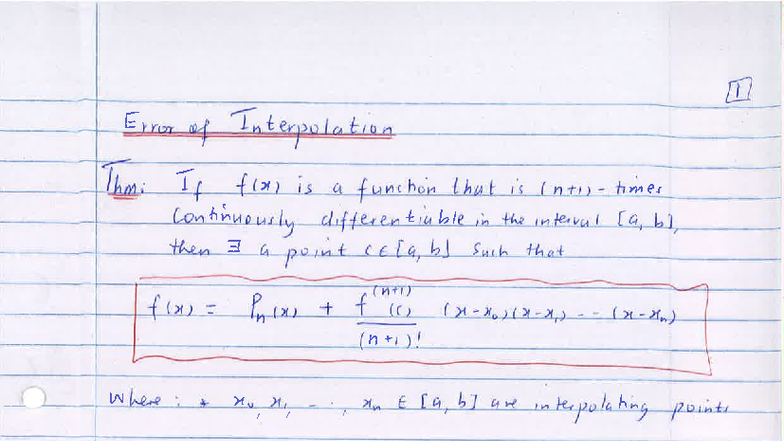 1
Error of Interpolation
Thm: If f(x) is a function that is (n+1)-times
continuously differentiable in the interval [a, b],
then ∃ a point c ∈ [a, b] such that
f(x) = Pₙ(x) + f⁽ⁿ⁺¹⁾(c) / (n+1)! (x-x₀)(x-x₁) -- (x-xₙ)
Where : * x₀, x₁, --, xₙ ∈ [a, b] are interpolating points